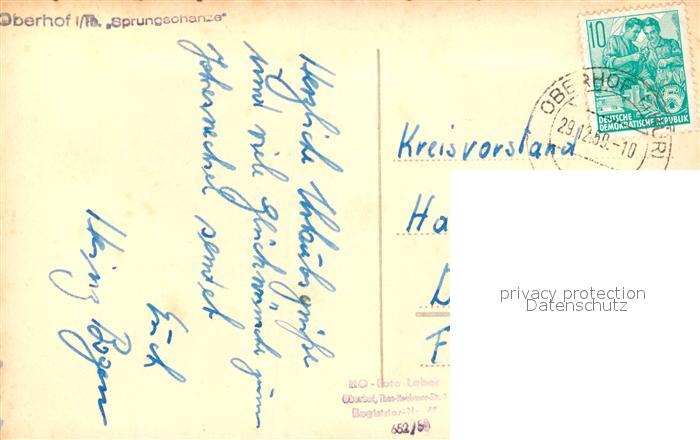 Oberhof i/Th. „Sprungschanze"
Herzliche Urlaubsgrüße
und viele Glückwünsche zum
Jahreswechsel sendet
Euch
Heinz
10
DEUTSCHE
DEMOKRATISCHE REPUBLIK
OBERHOF
29.12.59.-10
Kreisvorstand
Ha
D
F
privacy protection
Datenschutz
HO-Foto Labor
Oberhof,
Registrier-Nr.
652/59